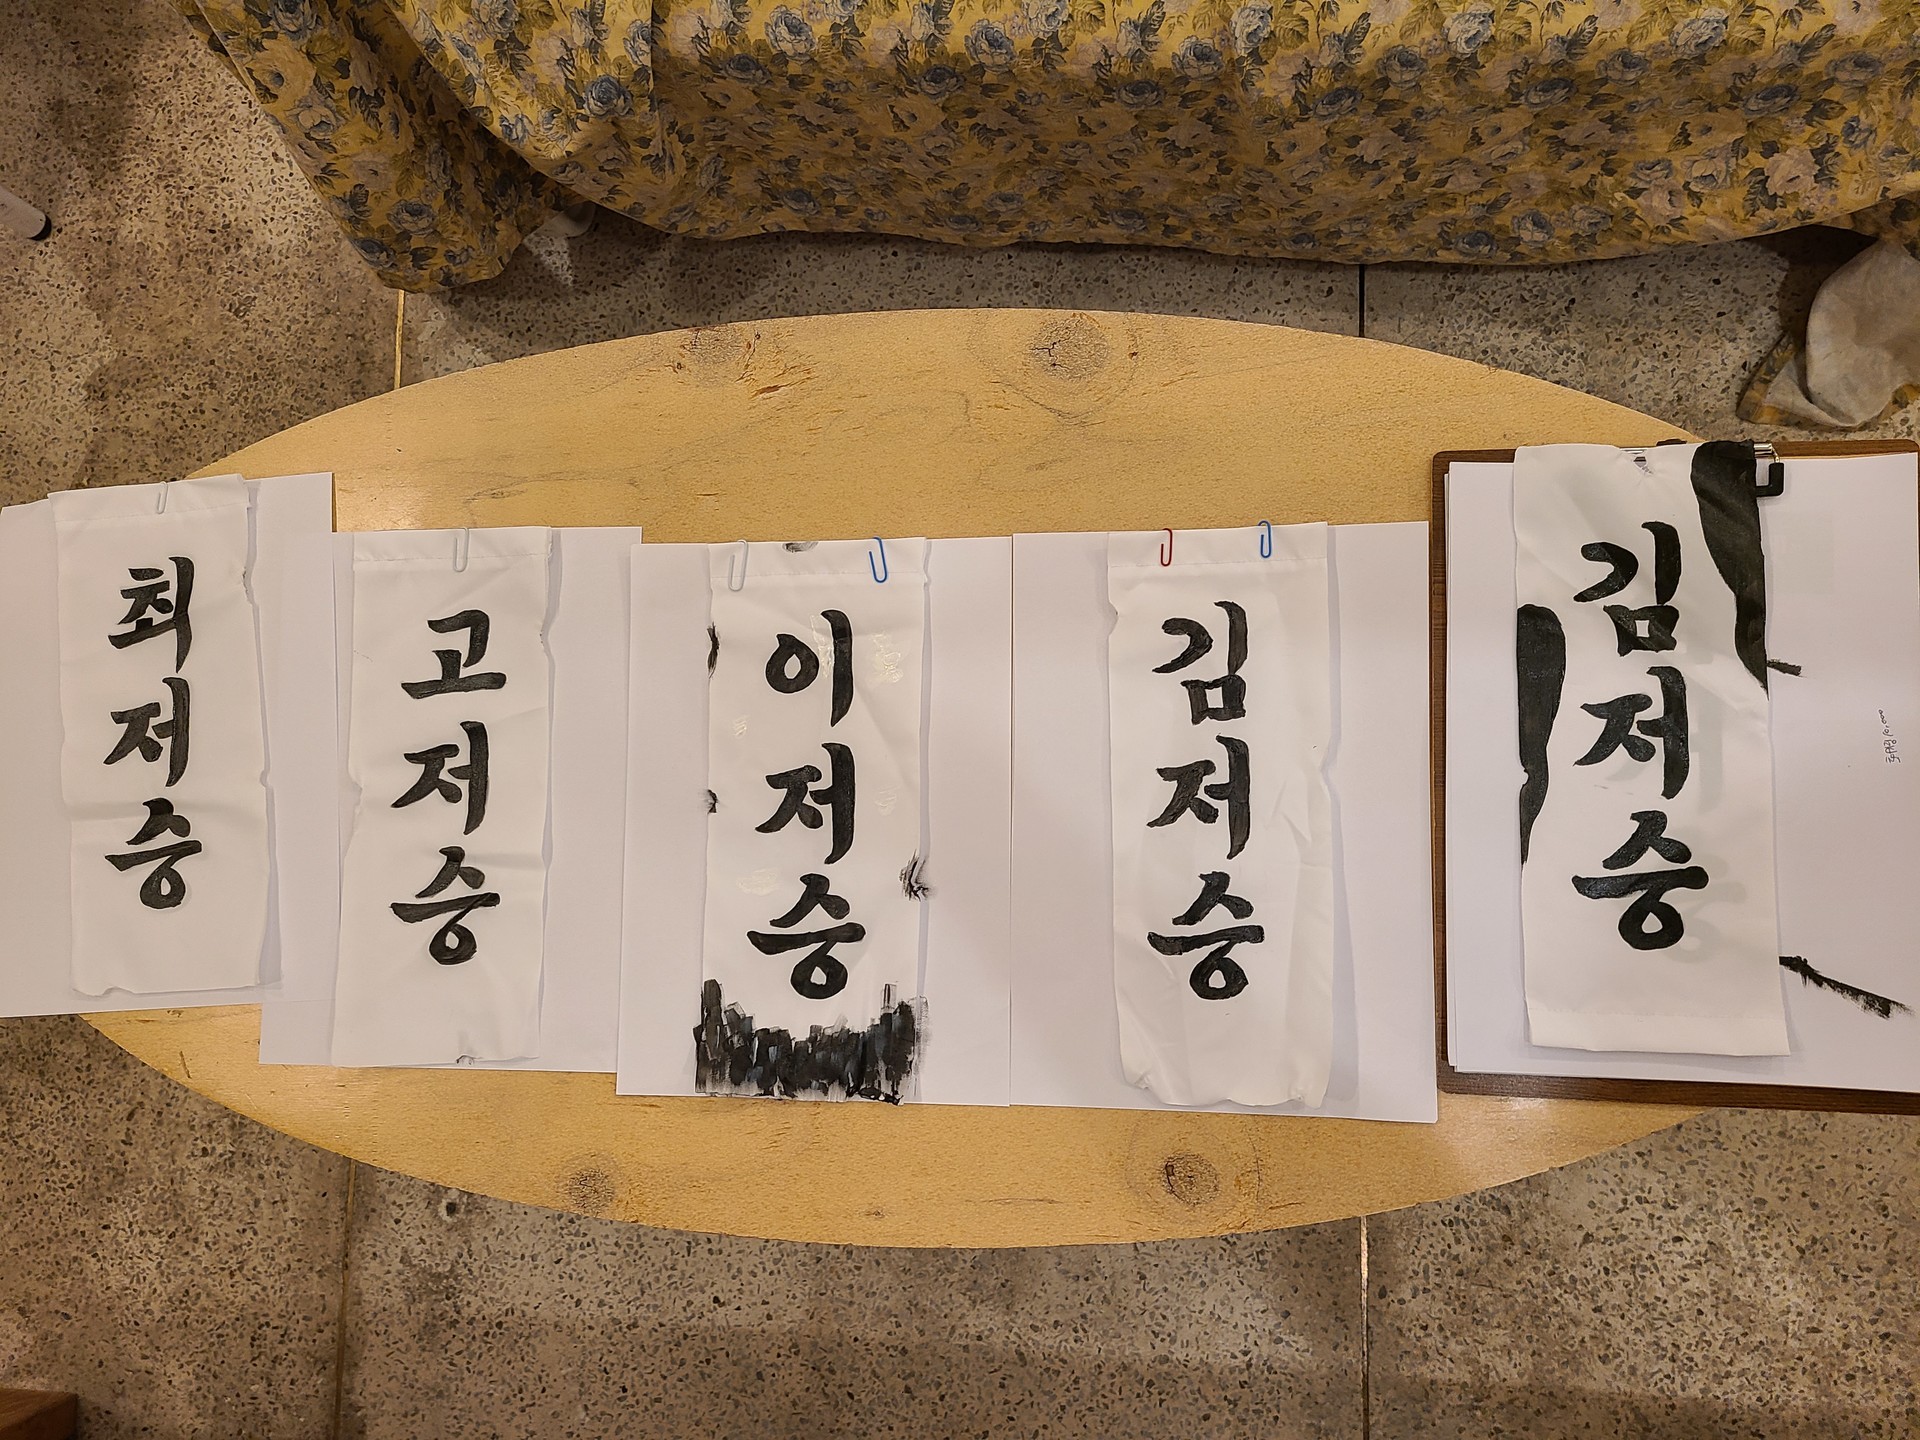 최저승
고저승
이저승
김저승
김저승